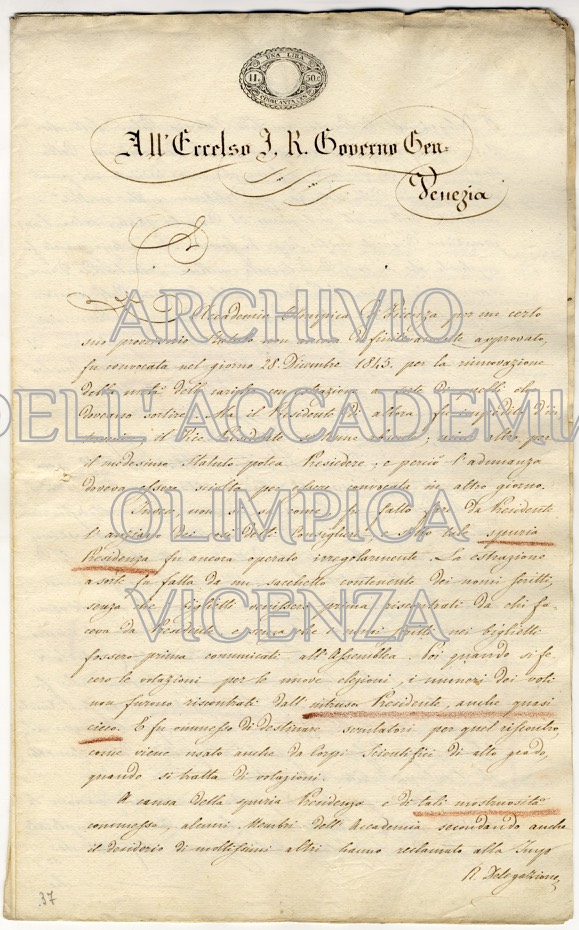 UNA LIRA
11. 50.c
CINQUANTA CEN.
All' Eccelso I. R. Governo Gen.
Venezia
L' Accademia Olimpica di Vicenza per un certo
suo provvisorio Statuto non ancora definitivamente approvato,
fu convocata nel giorno 28. Dicembre 1845. per la rinnovazione
della metà delle cariche con estrazione a sorte di quelli che
doveano sortire. Ma il Presidente di allora fu impedito
il Vice Presidente
il medesimo Statuto potea Presiedere; e perciò l'adunanza
doveva essere sciolta per essere convocata in altro giorno.
Invece, non si sa come, fu fatto fare da Presidente
l'anziano dei così detti Consiglieri. Sotto tale spuria
Presidenza fu ancora operato irregolarmente. La estrazione
a sorte fu fatta da un sacchetto contenente dei nomi scritti,
senza che i biglietti venissero prima riscontrati da chi fa-
ceva da Presidente e senza che i nomi scritti nei biglietti
fossero prima comunicati all'Assemblea. Poi quando si fe-
cero le votazioni per le nuove elezioni, i numeri dei voti
non furono riscontrati dall' intruso Presidente, anche quasi
cieco. E fu ommesso di destinare scrutatori per quel riscontro,
come viene usato anche da Corpi Scientifici di alto grado,
quando si tratta di votazioni.
A causa della spuria Presidenza e di tali mostruosità
commesse, alcuni Membri dell' Accademia secondando anche
il desiderio di moltissimi altri hanno reclamato alla Imp.
R. Delegazione,
37
ARCHIVIO
DELL'ACCADEMIA
OLIMPICA
VICENZA